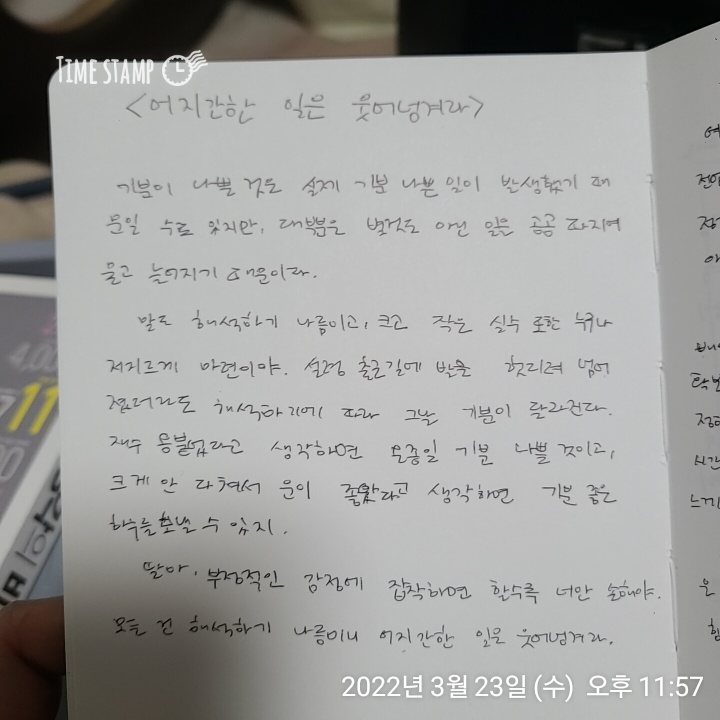 TIME STAMP
<어지간한 일은 웃어넘겨라>
기분이 나쁠 것도 실제 기분 나쁜 일이 발생했기 때
문일 수도 있지만, 대부분은 별것도 아닌 일은 꽁꽁 따지며
물고 늘어지기 때문이다.
말도 해석하기 나름이고, 크고 작은 실수 또한 누구나
저지르게 마련이야. 설령 출근길에 발을 헛디뎌 넘어
졌더라도 해석하기에 따라 그날 기분이 달라진다.
재수 옴붙었다고 생각하면 온종일 기분 나쁠 것이고,
크게 안 다쳐서 운이 좋았다고 생각하면 기분 좋은
하루를 보낼 수 있지.
딸아, 부정적인 감정에 집착하면 할수록 너만 손해야.
모든 건 해석하기 나름이니 어지간한 일은 웃어넘겨라.
4,00
11
00
여
전
정
아
탁
정
시간
느끼
운
힘
2022년 3월 23일 (수) 오후 11:57